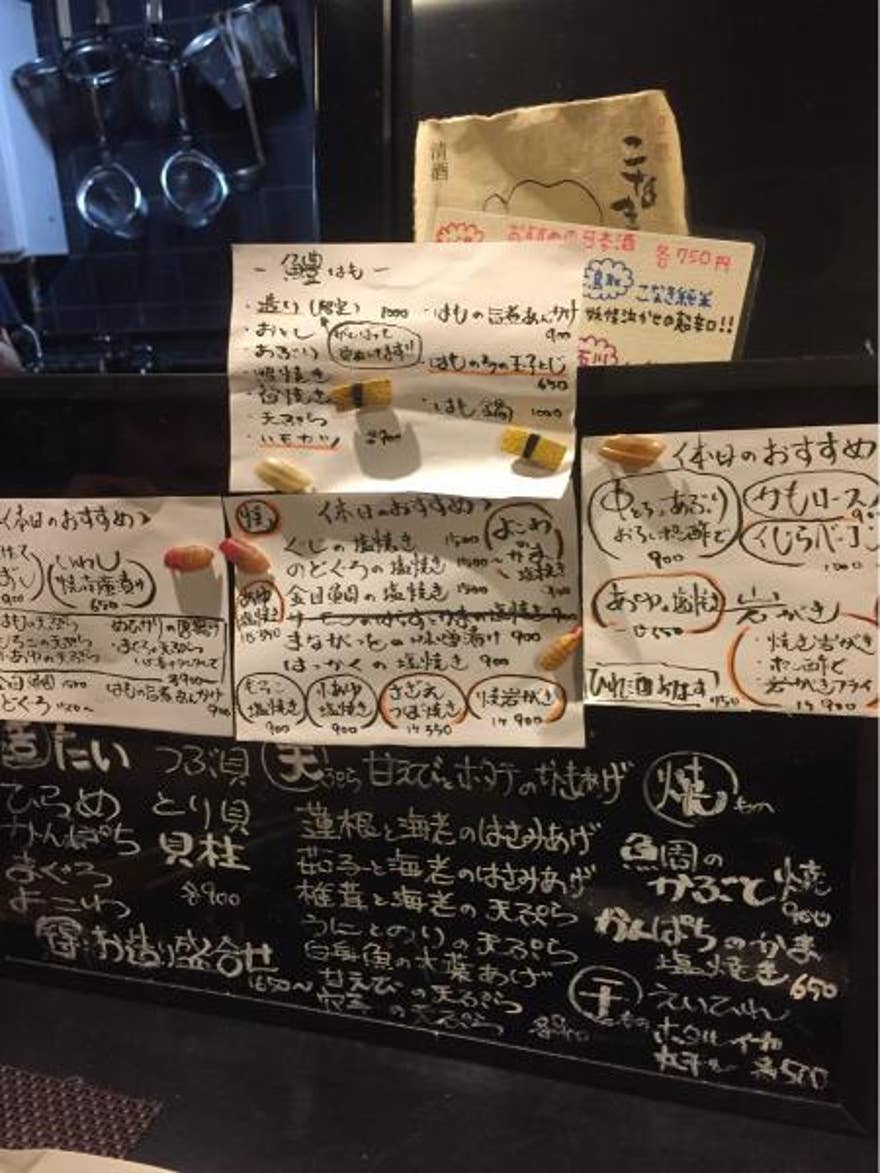 清酒
こなき
おすすめの日本酒 各750円
鳥取 こなき純米
妖怪泣かせの超辛口!!
石川
- 鱧はも -
・造り (限定) 1000
・おとし
・あぶり
・照焼き
・天ぷら
・ハモカツ 各900
・はもの旨煮あんかけ
900
・はもの子の玉子とじ
650
・はも鍋 1000
〈本日のおすすめ〉
900
いわし
650
はもの天ぷら
もろこの天ぷら
小あゆの天ぷら
まぐろ天ぷら
各900
はもの旨煮あんかけ
900
焼
〈本日のおすすめ〉
ぐじの塩焼き 1500
のどぐろの塩焼き 1500〜
金目鯛の塩焼き 1500
サーモンのはらすとかまの塩焼き 900
まながつをの味噌漬け 900
はっかくの塩焼き 900
よこわ
の
かま
塩焼き
900
あゆ
塩焼き
もろこ
塩焼き
900
小あゆ
塩焼き
900
さざえ
つぼ焼き
1ケ 550
焼岩がき
1ケ 900
〈本日のおすすめ
中とろあぶり
おろしポン酢で
900
かもロース
くじらベーコン
あゆの塩焼き
岩がき
・焼き岩がき
・ポン酢で
・岩がきフライ
1ケ 900
ひれ酒あります
750
造 たい つぶ貝
ひらめ とり貝
かんぱち 貝柱
まぐろ 各900
よこわ
得 お造り盛合せ
1650〜
天ぷら 甘えびとホタテのかきあげ
蓮根と海老のはさみあげ
茄子と海老のはさみあげ
椎茸と海老の天ぷら
うにとのりの天ぷら
白身魚の大葉あげ
甘えびの天ぷら
穴子の天ぷら 各900
焼もの
鯛の
かぶと焼
900
かんぱちのかま
塩焼き 650
干もの えいひれ
ホタルイカ
丸干し 各500